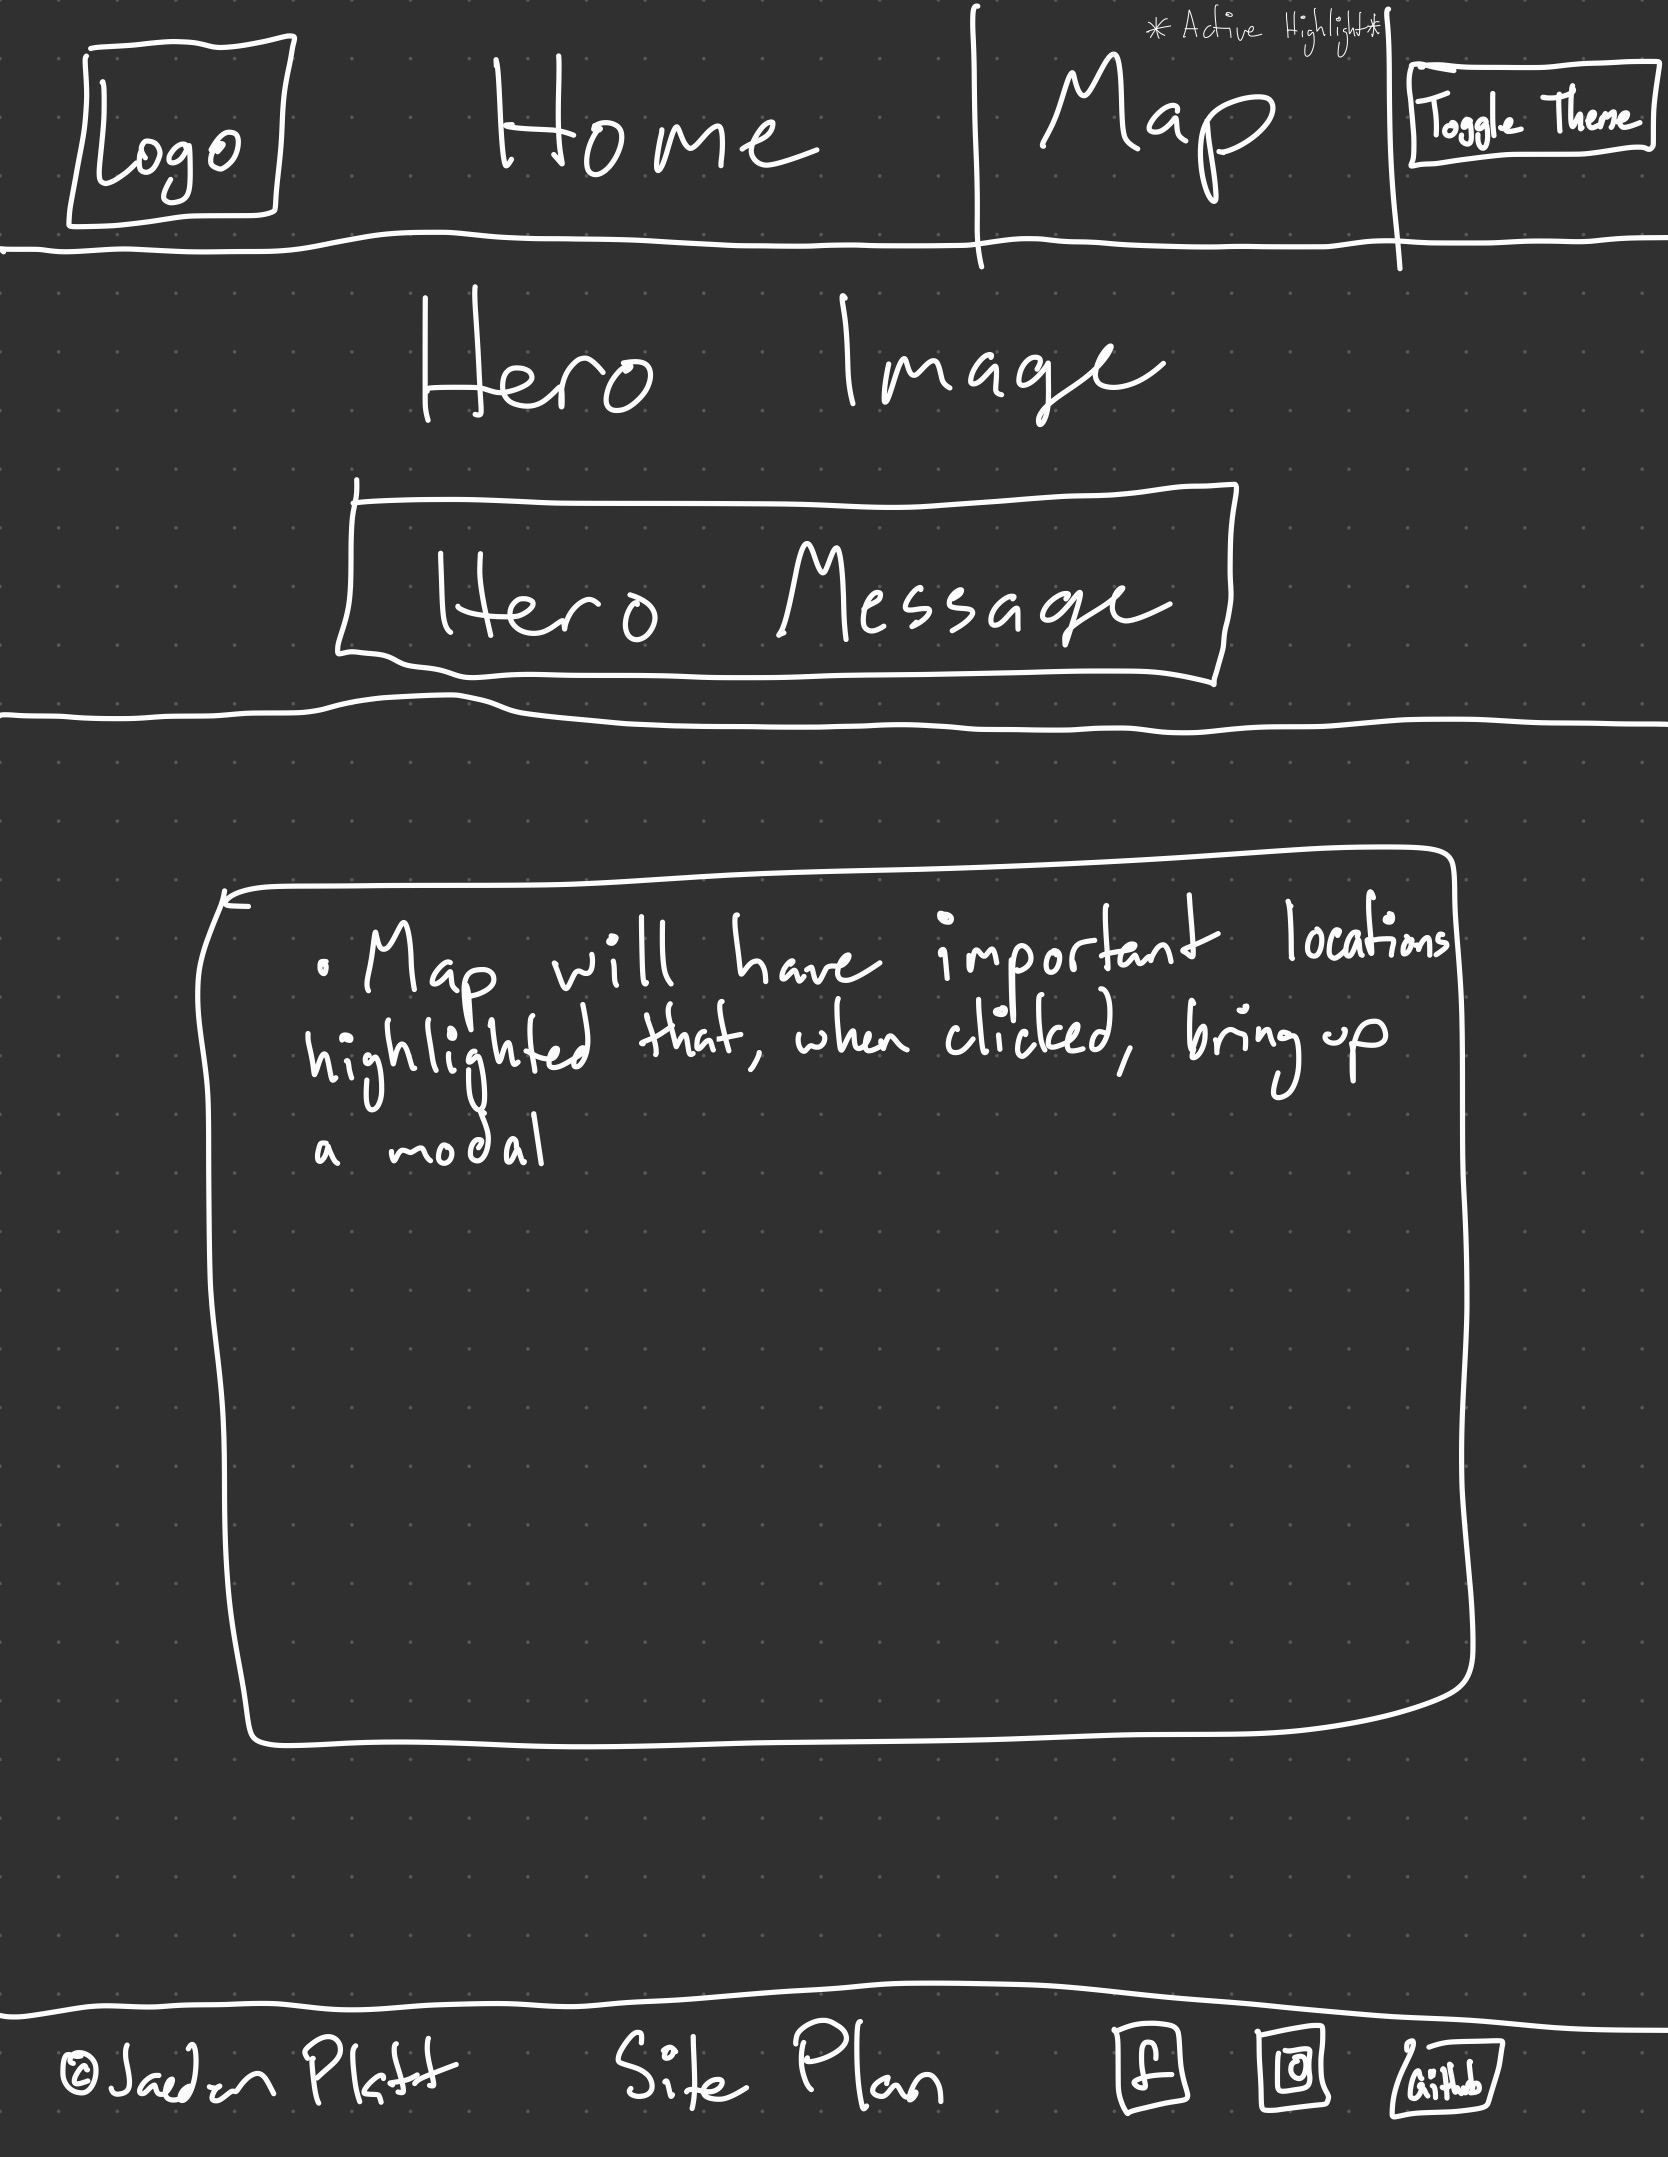 * Active Highlight *
Logo Home Map Toggle Theme
Hero Image
Hero Message
• Map will have important locations
highlighted that, when clicked, bring up
a modal
© Jaedan Platt Site Plan f GitHub